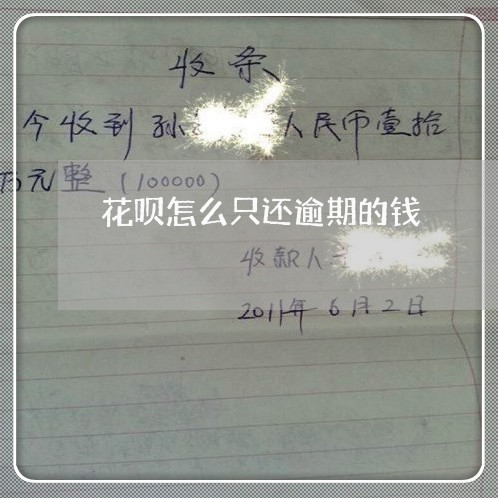 收条
今收到孙 人民币壹拾
万元整(100000)
花呗怎么只还逾期的钱
收款人
2011年6月2日